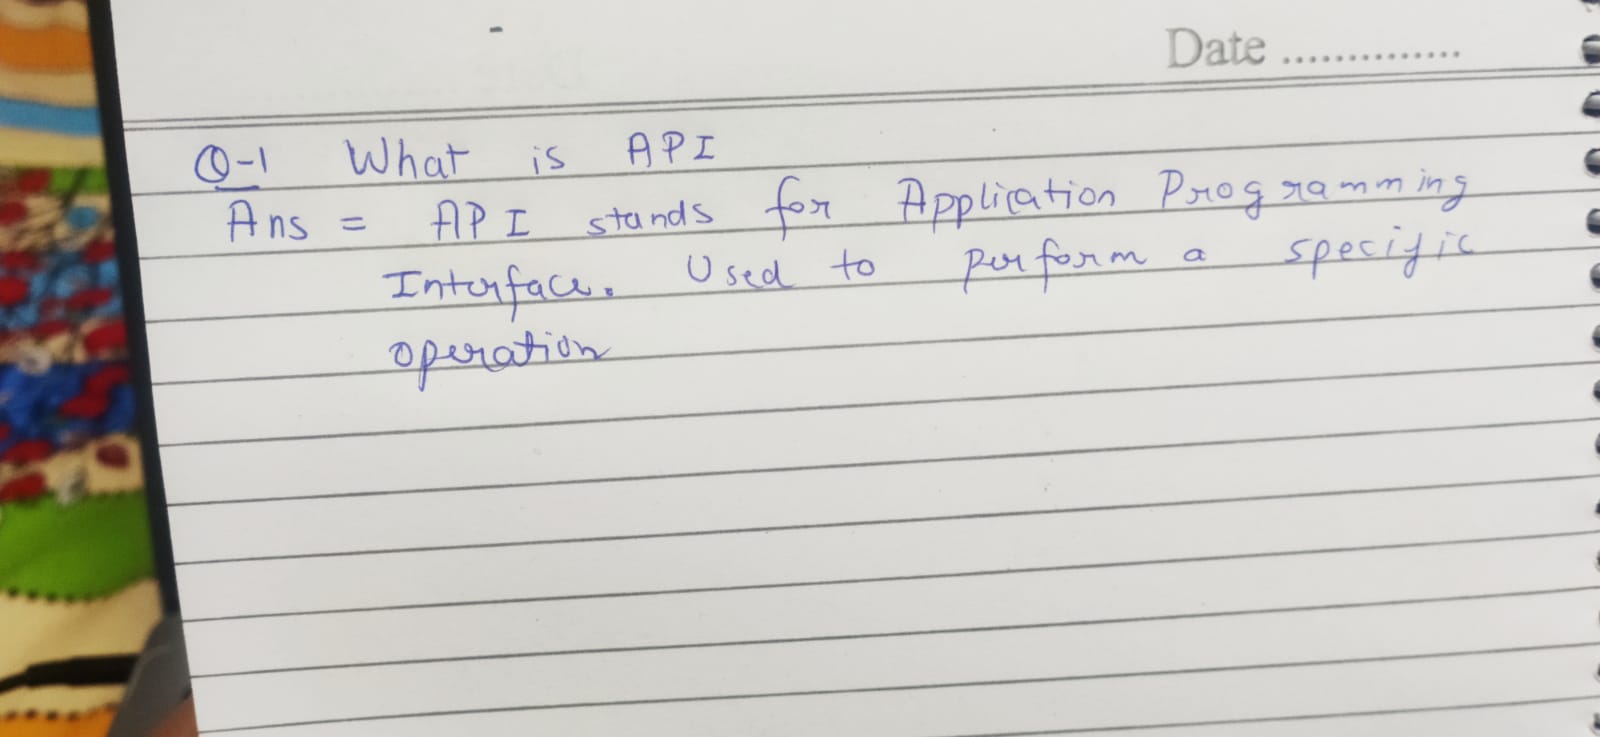 Date ..............
Q-1 What is API
Ans = API stands for Application Programming
Interface. Used to perform a specific
operation